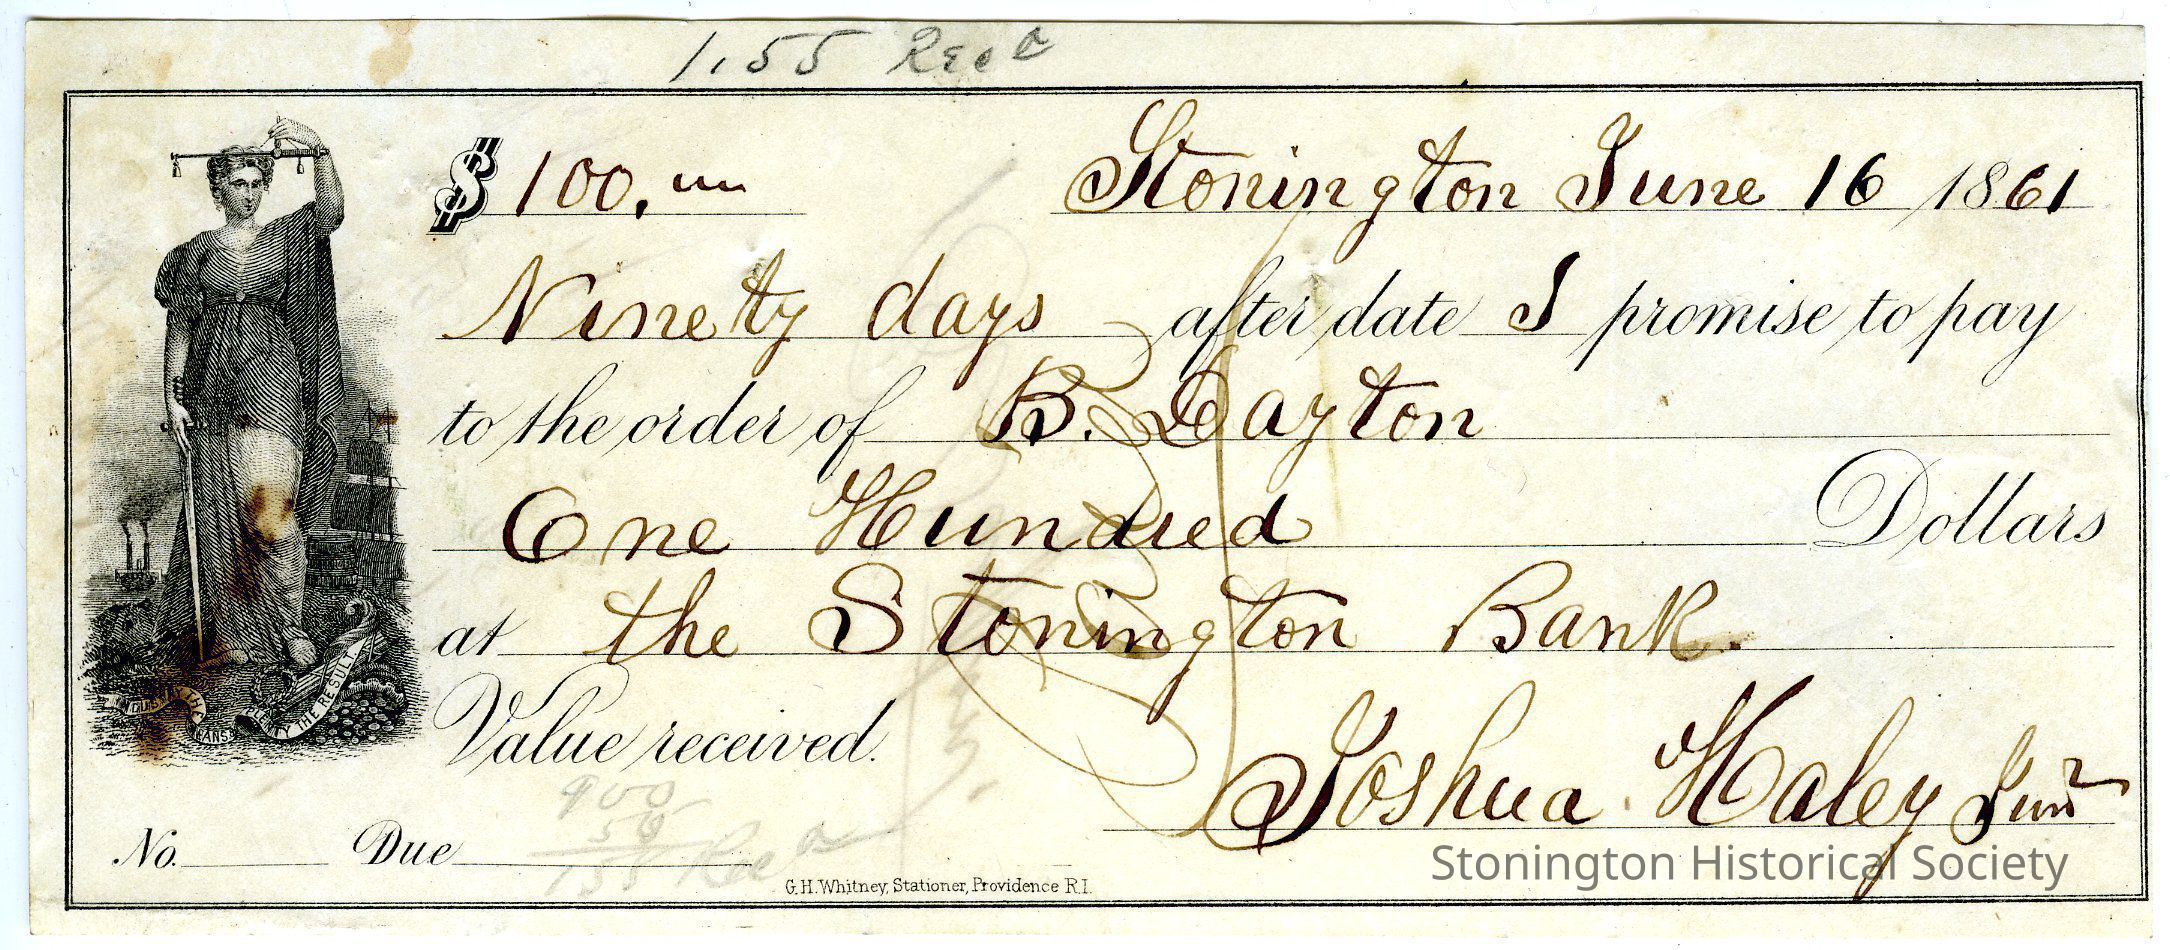 1.55 Recd
$ 100.
Stonington June 16 1861
Ninety days after date I promise to pay
to the order of B. Dayton
One Hundred Dollars
at the Stonington Bank.
Value received.
Joshua Haley Junr
INDUSTRY THE MEANS
PLENTY THE RESULT
900
No. Due
Recd
G. H. Whitney, Stationer, Providence R.I.
Stonington Historical Society